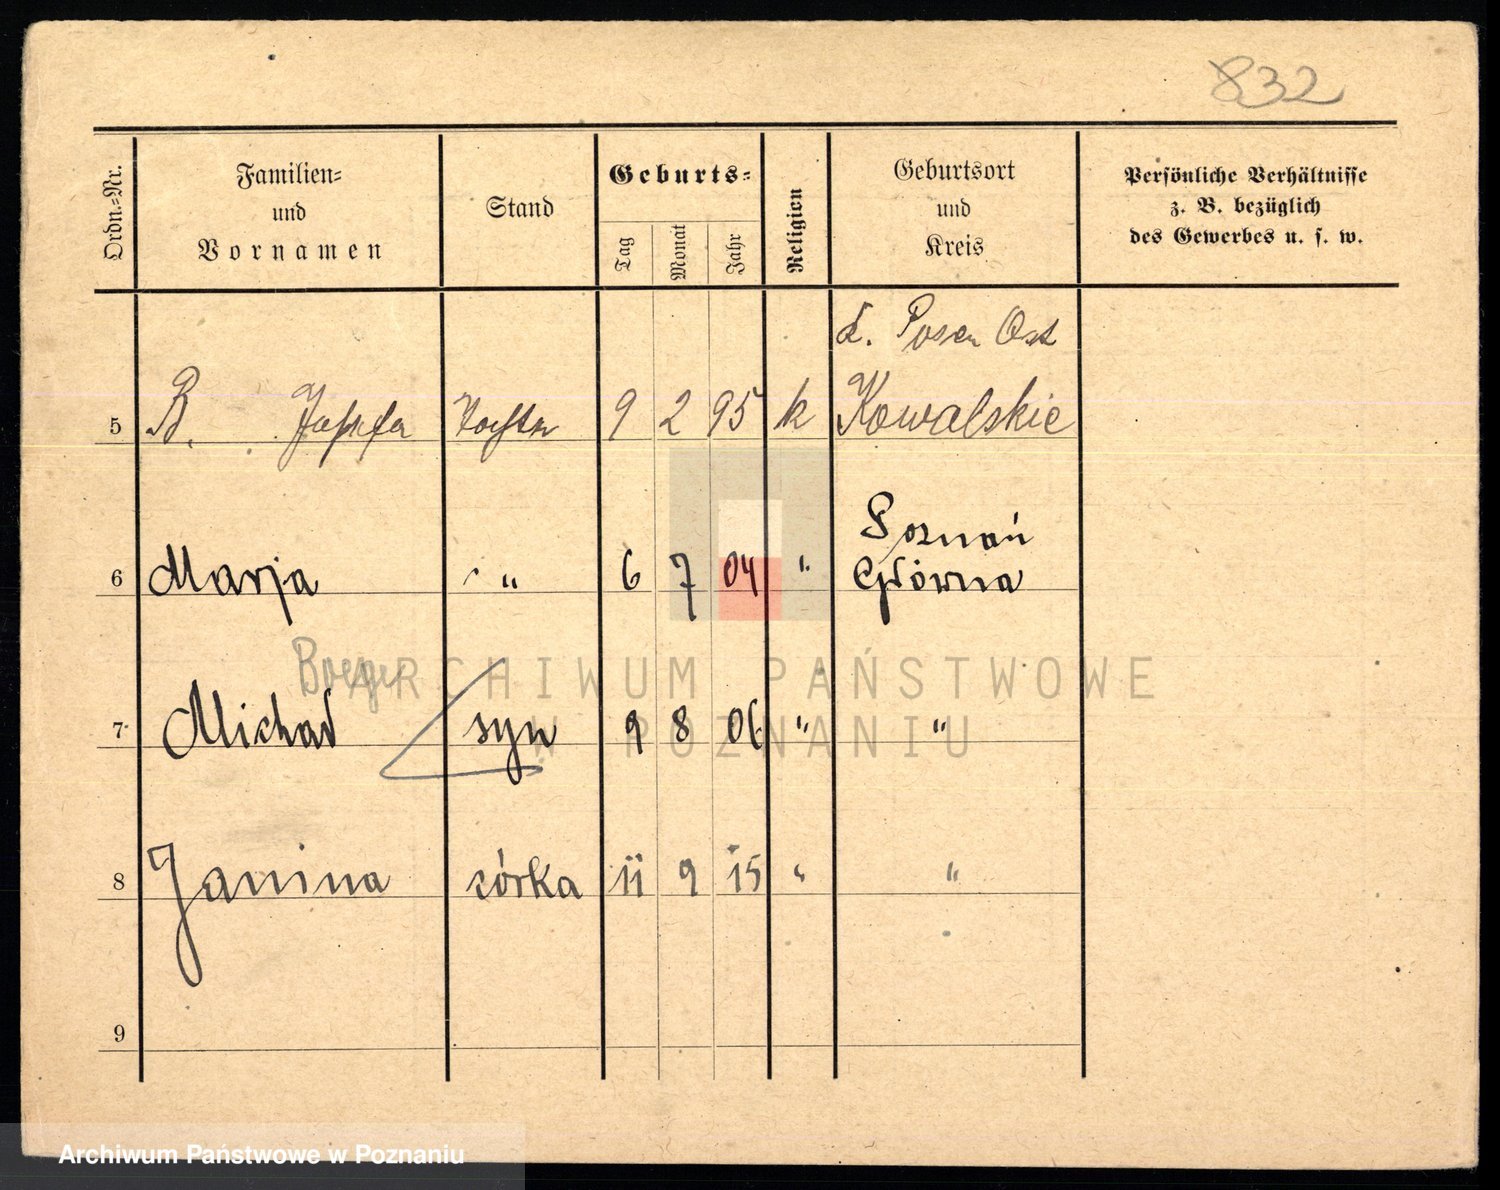 832
Ordn.-Nr.
Familien-
und
Vornamen
Stand
Geburts-
Tag
Monat
Jahr
Religion
Geburtsort
und
Kreis
Persönliche Verhältnisse
z. B. bezüglich
des Gewerbes u. s. w.
Posen Ost
5 B. Josefa Tochter 9 2 95 k Kowalskie
Poznań
6 Marja " 6 7 04 " Główna
Boeger
7 Michał syn 9 8 06 " "
8 Janina córka 11 9 15 " "
9
ARCHIWUM PAŃSTWOWE
W POZNANIU
Archiwum Państwowe w Poznaniu